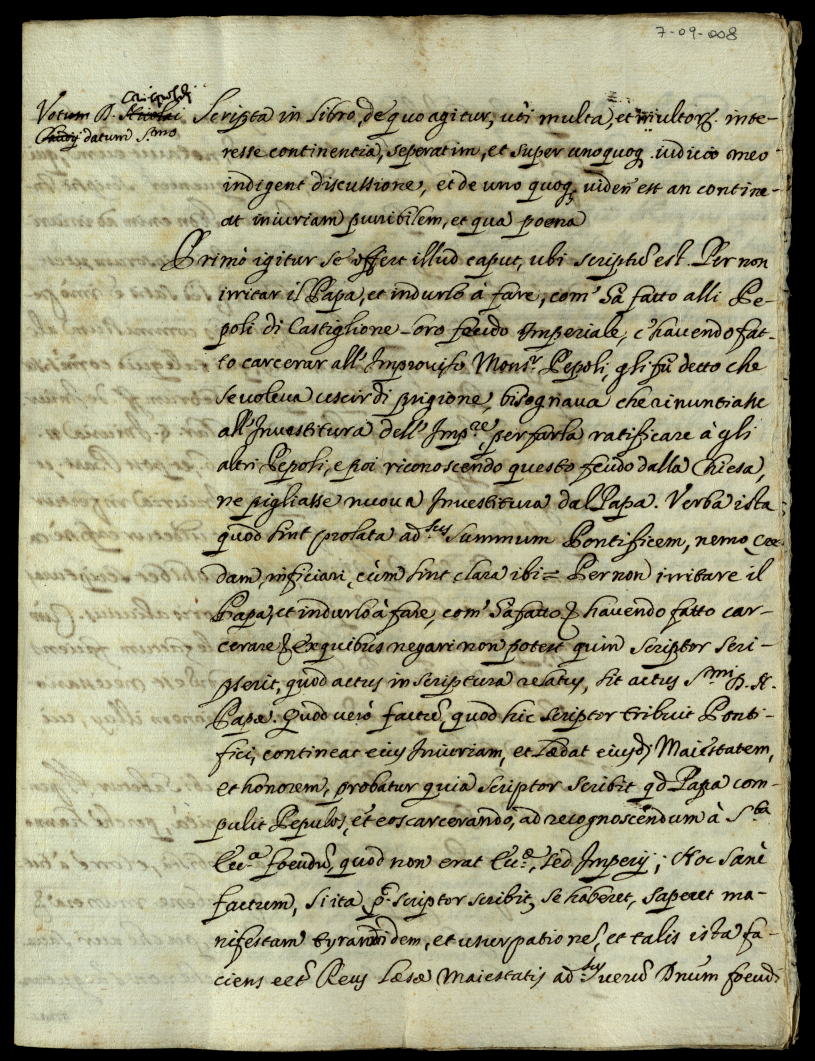 7-09-008
Crispoldi
Votum D. Nicolai
datum S.mo
Scripta in libro, de quo agitur, uti multa, et multor. inte-
resse continentia, seperatim, et super unoquoq. iudicio meo
indigent discussione, et de uno quoq. viden. est an contine-
at iniuriam punibilem, et qua poena
Primò igitur se offert illud caput, ubi scriptũ est. Per non
irritar il Papa, et indurlo à fare, com' hà fatto alli Pe-
poli di Castiglione loro feudo Imperiale, c'havendo fat-
to carcerar all'Improviso Mons.r Pepoli, gli fù detto che
se voleva uscir di prigione, bisognava che rinuntiasse
all'Investitura dell'Imp.re, per farla ratificare à gli
altri Pepoli, e poi riconoscendo questo feudo dalla Chiesa,
ne pigliasse nuova Investitura dal Papa. Verba ista
quod sint prolata ad.sus summum Pontificem, nemo, cre-
dam, inficiari, cùm sint clara ibi = Per non irritare il
Papa, et indurlo à fare, com' hà fatto & havendo fatto car-
cerare & Ex quibus negari non potest quin scriptor scri-
pserit, quod actus in scriptura relatus, sit actus S.mi D. N.
Papæ. Quod verò factũ, quod hic scriptor tribuit Ponti-
fici, contineat eius Iniuriam, et lædat eiusd. Maiestatem,
et honorem, probatur quia scriptor scribit qd Papa com-
pulit Pepulos, et eos carcerando, ad recognoscendum à S.ta
Ecc.a foendũ, quod non erat Ecc.æ, sed Imperij; Hoc sanè
factum, si ita, p.t scriptor scribit, se haberet, saperet ma-
nifestam tyrannidem, et usurpationẽ, et talis ista fa-
ciens eet Reus læsæ Maiestatis ad.sus verũ Dnum foendi